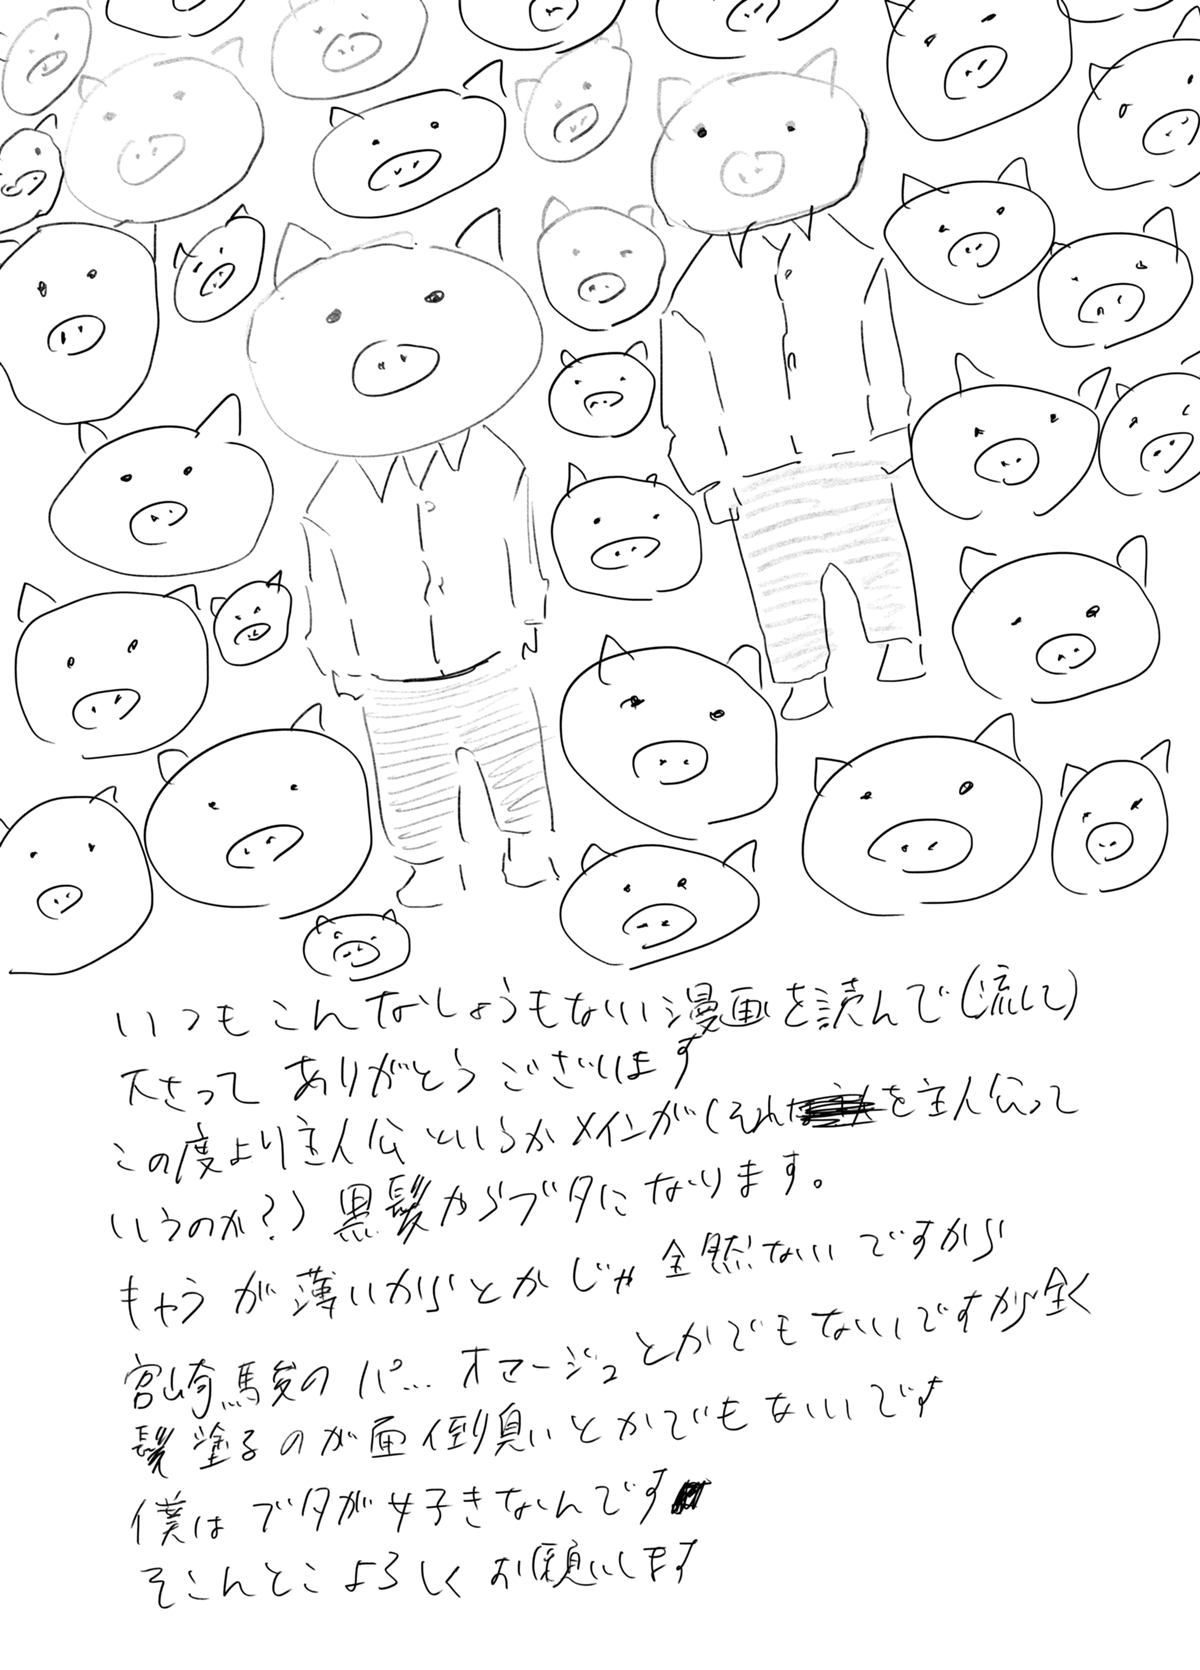 いつもこんなしょうもないい漫画を読んで(流して)
下さって ありがとうございます
この度より主人公というかメインが(それを主人公って
いうのか?) 黒髪からブタになります。
キャラが薄いからとかじゃ全然ないですから
宮崎駿のパ… オマージュとかでもないいですが全く
髪塗るのが面倒臭いとかでもないいです
僕はブタが好きなんです
そこんとこよろしくお願いします